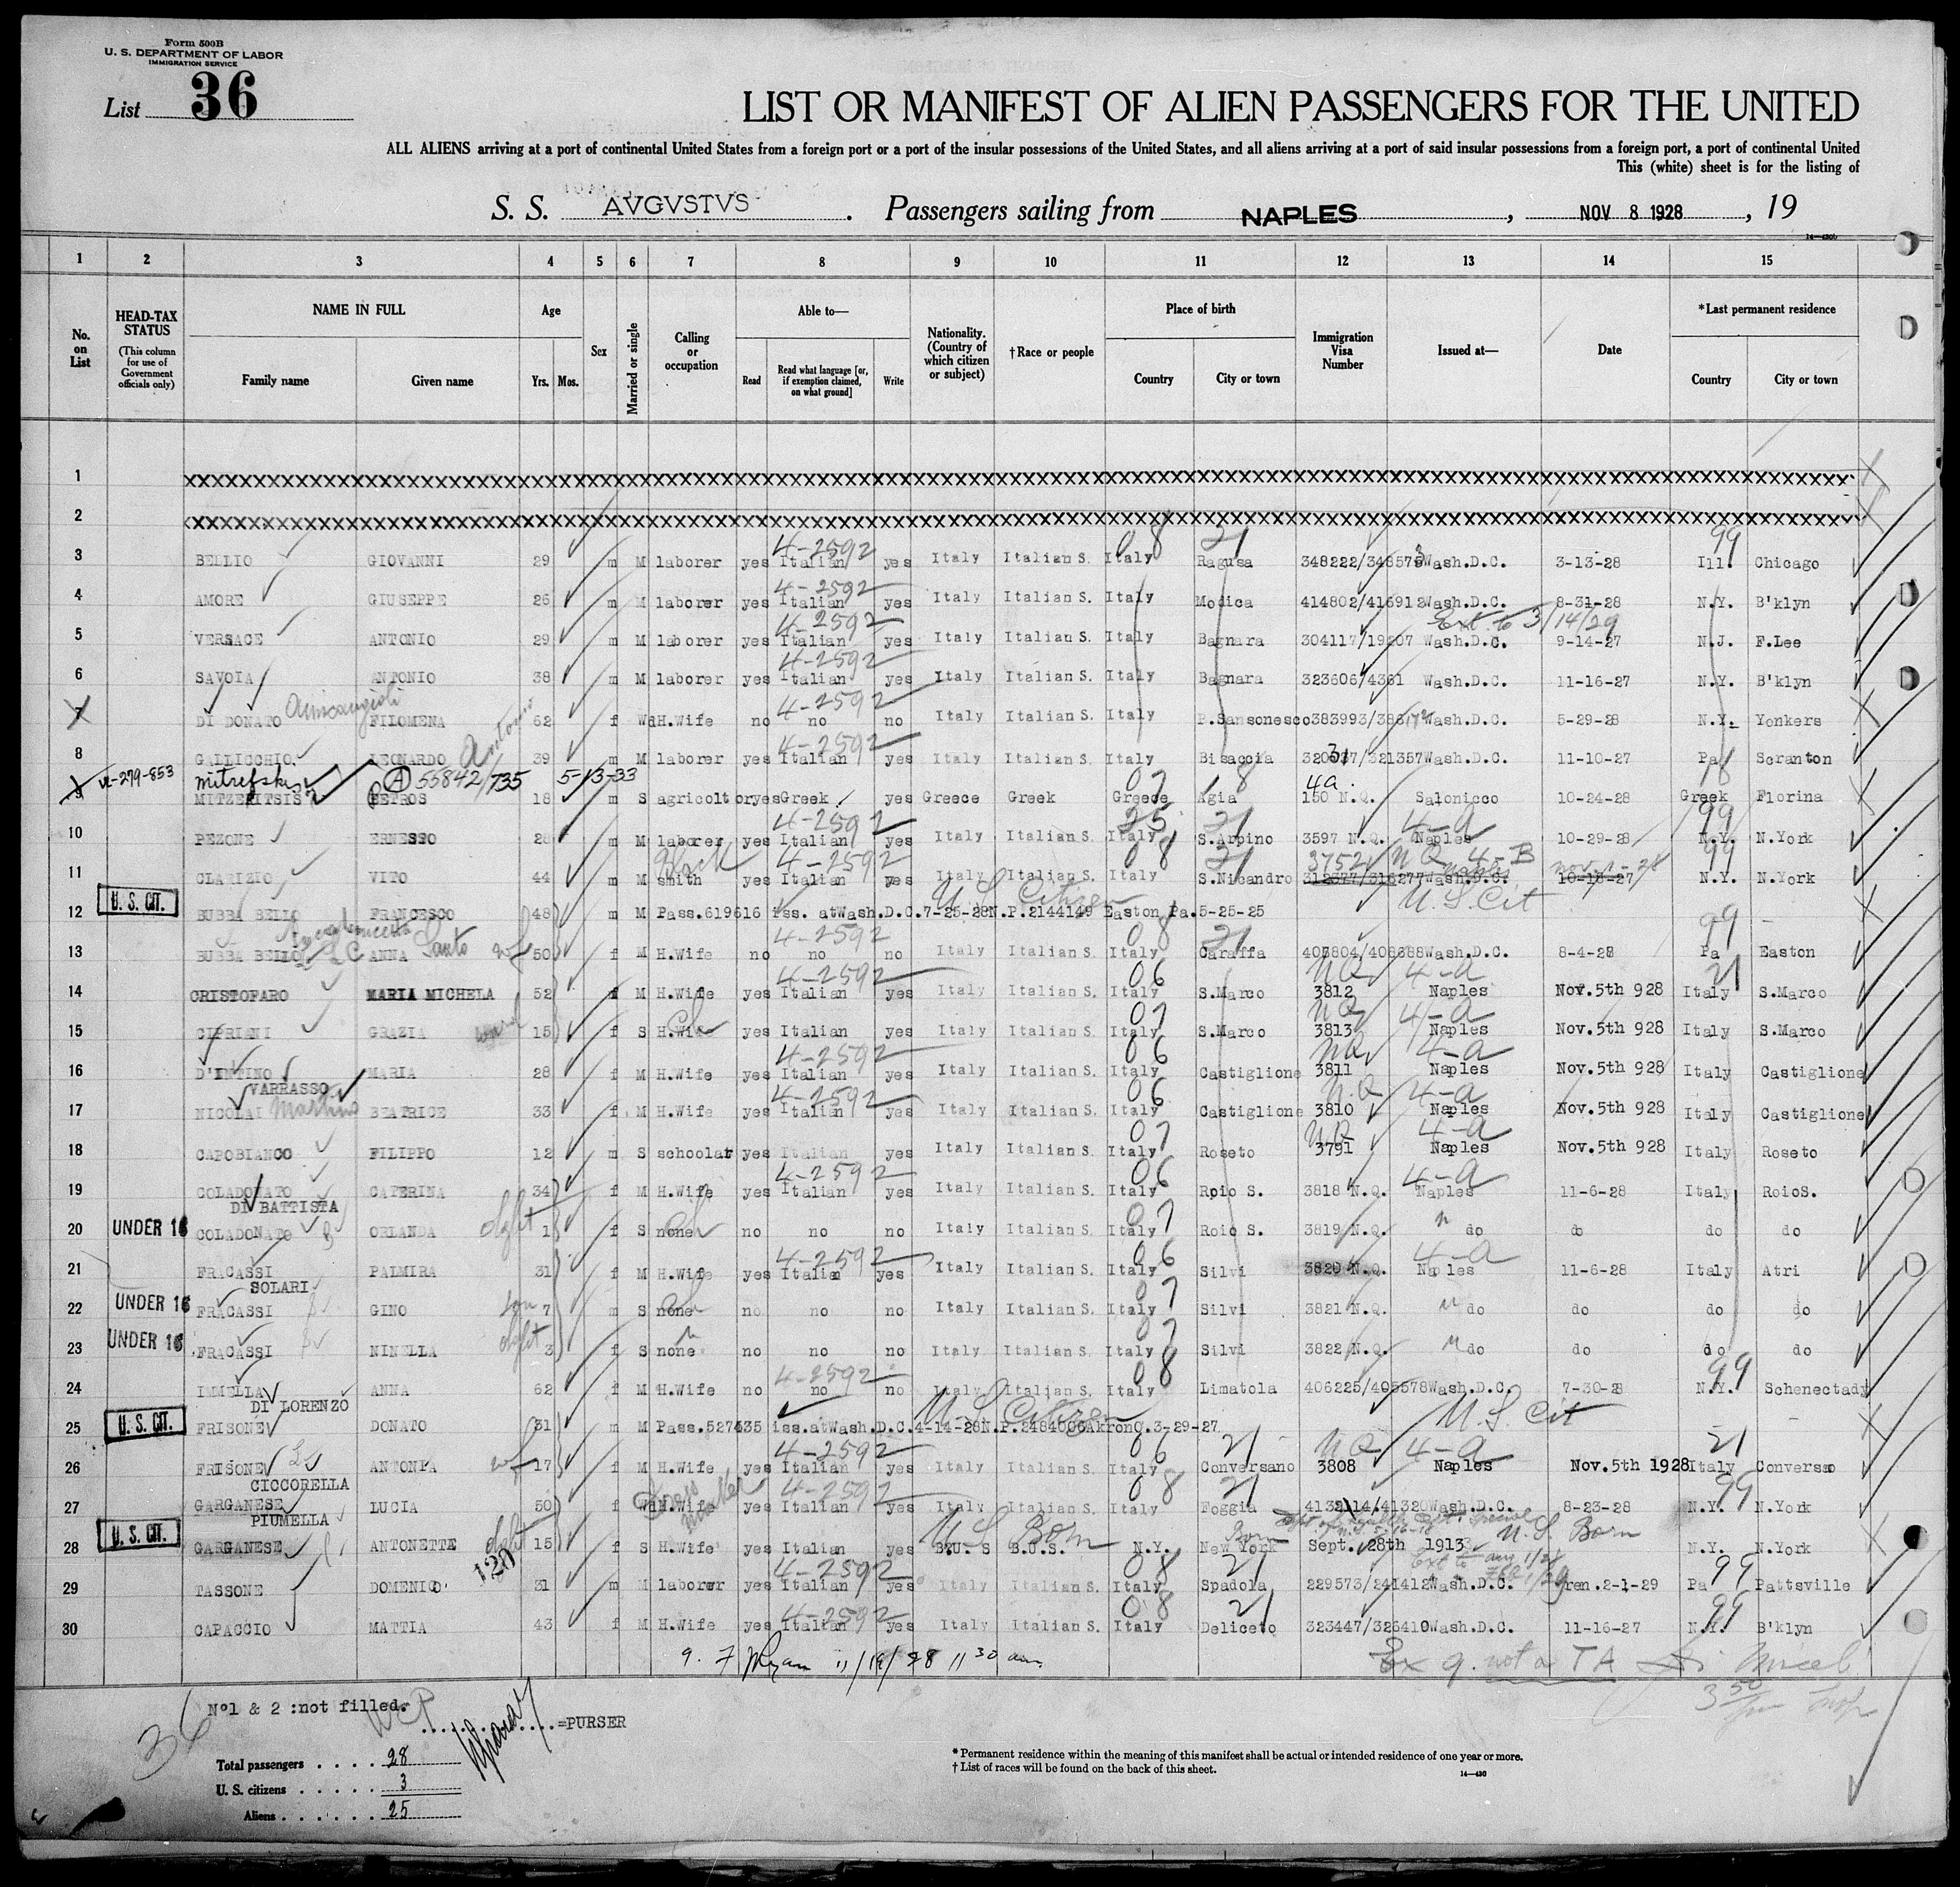 Form 500B
U. S. DEPARTMENT OF LABOR
IMMIGRATION SERVICE
List 36
LIST OR MANIFEST OF ALIEN PASSENGERS FOR THE UNITED
ALL ALIENS arriving at a port of continental United States from a foreign port or a port of the insular possessions of the United States, and all aliens arriving at a port of said insular possessions from a foreign port, a port of continental United
This (white) sheet is for the listing of
S. S. AVGVSTVS. Passengers sailing from NAPLES, NOV 8 1928, 19
14—430b
1 2 3 4 5 6 7 8 9 10 11 12 13 14 15
No. on List
HEAD-TAX STATUS (This column for use of Government officials only)
NAME IN FULL
Family name Given name
Age
Yrs. Mos.
Sex
Married or single
Calling or occupation
Able to—
Read Read what language [or, if exemption claimed, on what ground] Write
Nationality. (Country of which citizen or subject)
†Race or people
Place of birth
Country City or town
Immigration Visa Number
Issued at—
Date
*Last permanent residence
Country City or town
1 XXXXXXXX
2 XXXXXXXX
4-2592 08 21 99
3 BELLIO GIOVANNI 29 m M laborer yes Italian yes Italy Italian S. Italy Ragusa 348222/348573 Wash.D.C. 3-13-28 Ill. Chicago
4-2592
4 AMORE GIUSEPPE 26 m M laborer yes Italian yes Italy Italian S. Italy Modica 414802/416912 Wash.D.C. 8-31-28 N.Y. B'klyn
4-2592 Ext. to 3/14/29
5 VERSACE ANTONIO 29 m M laborer yes Italian yes Italy Italian S. Italy Bagnara 304117/19207 Wash.D.C. 9-14-27 N.J. F.Lee
4-2592
6 SAVOIA ANTONIO 38 m M laborer yes Italian yes Italy Italian S. Italy Bagnara 323606/4361 Wash.D.C. 11-16-27 N.Y. B'klyn
4-2592
7 DI DONATO FILOMENA 62 f Wd H.Wife no no no Italy Italian S. Italy P.Sansonesco Wash.D.C. 5-29-28 N.Y. Yonkers
Antonio 4-2592
8 GALLICCHIO LEONARDO 39 m M laborer yes Italian yes Italy Italian S. Italy Bisaccia Wash.D.C. 11-10-27 Pa Scranton
Mitrefskis A 55842/735 5-13-33 07 18 4a
9 MITZERITSIS PETROS 18 m S agricoltor yes Greek yes Greece Greek Greece Agia 150 N.Q. Salonicco 10-24-28 Greek Florina
4-2592 25 21 4-a 99
10 PEZONE ERNESSO 28 m M laborer yes Italian yes Italy Italian S. Italy S.Arpino 3597 N.Q. Naples 10-29-28 N.Y. N.York
Black 4-2592 08 21 3752 NQ 4-B Naples 99
11 CLARIZIO VITO 44 m M smith yes Italian yes Italy Italian S. Italy S.Nicandro Wash.D.C. 10-18-27 N.Y. N.York
U. S. CIT. U S Citizen U.S. Cit
12 BUBBA BELLO FRANCESCO 48 m M Pass.619616 iss. at Wash.D.C.7-25-28 N.P.2144149 Easton Pa.5-25-25 -
4-2592 08 21 99
13 BUBBA BELLO ANNA Santo wf 50 f M H.Wife no no no Italy Italian S. Italy Caraffa Wash.D.C. 8-4-28 Pa Easton
4-2592 06 NQ 4-a 21
14 CRISTOFARO MARIA MICHELA 52 f M H.Wife yes Italian yes Italy Italian S. Italy S.Marco 3812 Naples Nov.5th 928 Italy S.Marco
07 NQ 4-a
15 CIPRIANI GRAZIA 15 f S H.Wife yes Italian yes Italy Italian S. Italy S.Marco 3813 Naples Nov.5th 928 Italy S.Marco
4-2592 06 NQ 4-a
16 D'INTINO MARIA 28 f M H.Wife yes Italian yes Italy Italian S. Italy Castiglione 3811 Naples Nov.5th 928 Italy Castiglione
VARRASSO 4-2592 06 N.Q 4-a
17 NICOLAI BEATRICE 33 f M H.Wife yes Italian yes Italy Italian S. Italy Castiglione 3810 Naples Nov.5th 928 Italy Castiglione
07 NQ 4-a
18 CAPOBIANCO FILIPPO 12 m S schoolar yes Italian yes Italy Italian S. Italy Roseto 3791 Naples Nov.5th 928 Italy Roseto
4-2592 06 4-a
19 COLADONATO CATERINA 34 f M H.Wife yes Italian yes Italy Italian S. Italy Roio S. 3818 N.Q. Naples 11-6-28 Italy RoioS.
DI BATTISTA 07
20 UNDER 16 COLADONATO ORLANDA dght 1 f S none no no no Italy Italian S. Italy Roio S. 3819 N.Q. do do do do
4-2592 06 4-a
21 FRACASSI PALMIRA 31 f M H.Wife yes Italian yes Italy Italian S. Italy Silvi 3820 N.Q. Naples 11-6-28 Italy Atri
SOLARI 07
22 UNDER 16 FRACASSI GINO son 7 m S none no no no Italy Italian S. Italy Silvi 3821 N.Q. do do do do
07
23 UNDER 16 FRACASSI NINELLA dght 3 f S none no no no Italy Italian S. Italy Silvi 3822 N.Q. do do do do
4-2592 08 99
24 IMMELLA ANNA 62 f M H.Wife no no no Italy Italian S. Italy Limatola 406225/405578 Wash.D.C. 7-30-28 N.Y. Schenectady
DI LORENZO U.S. Citizen U.S. Cit
25 U. S. CIT. FRISONE DONATO 31 m M Pass.527435 iss.at Wash.D.C.4-14-28 N.P.2484006 Akron O.3-29-27 - -
4-2592 06 21 NQ 4-a 21
26 FRISONE ANTONIA wf 17 f M H.Wife yes Italian yes Italy Italian S. Italy Conversano 3808 Naples Nov.5th 1928 Italy Converso
CICCORELLA Dress maker 4-2592 08 21 99
27 GARGANESE LUCIA 50 f Wd H.Wife yes Italian yes Italy Italian S. Italy Foggia Wash.D.C. 8-23-28 N.Y. N.York
PIUMELLA U S Born Born U.S. Born
28 U. S. CIT. GARGANESE ANTONETTE dght 15 f S H.Wife yes Italian yes B.U.S B.U.S. N.Y. New York Sept. 28th 1913 N.Y. N.York
120 4-2592 08 21 99
29 TASSONE DOMENICO 31 m M laborer yes Italian yes Italy Italian S. Italy Spadola 229573/241412 Wash.D.C. ren.2-1-29 Pa Pattsville
4-2592 08 21 99
30 CAPACCIO MATTIA 43 f M H.Wife yes Italian yes Italy Italian S. Italy Deliceto 323447/326410 Wash.D.C. 11-16-27 N.Y. B'klyn
11/19/28 11 30 am
Ex 9. not a TA
N°1 & 2 :not filled.
36
=PURSER
Total passengers . . . . 28
U. S. citizens . . . . . 3
Aliens . . . . . . 25
* Permanent residence within the meaning of this manifest shall be actual or intended residence of one year or more.
† List of races will be found on the back of this sheet.
14—430